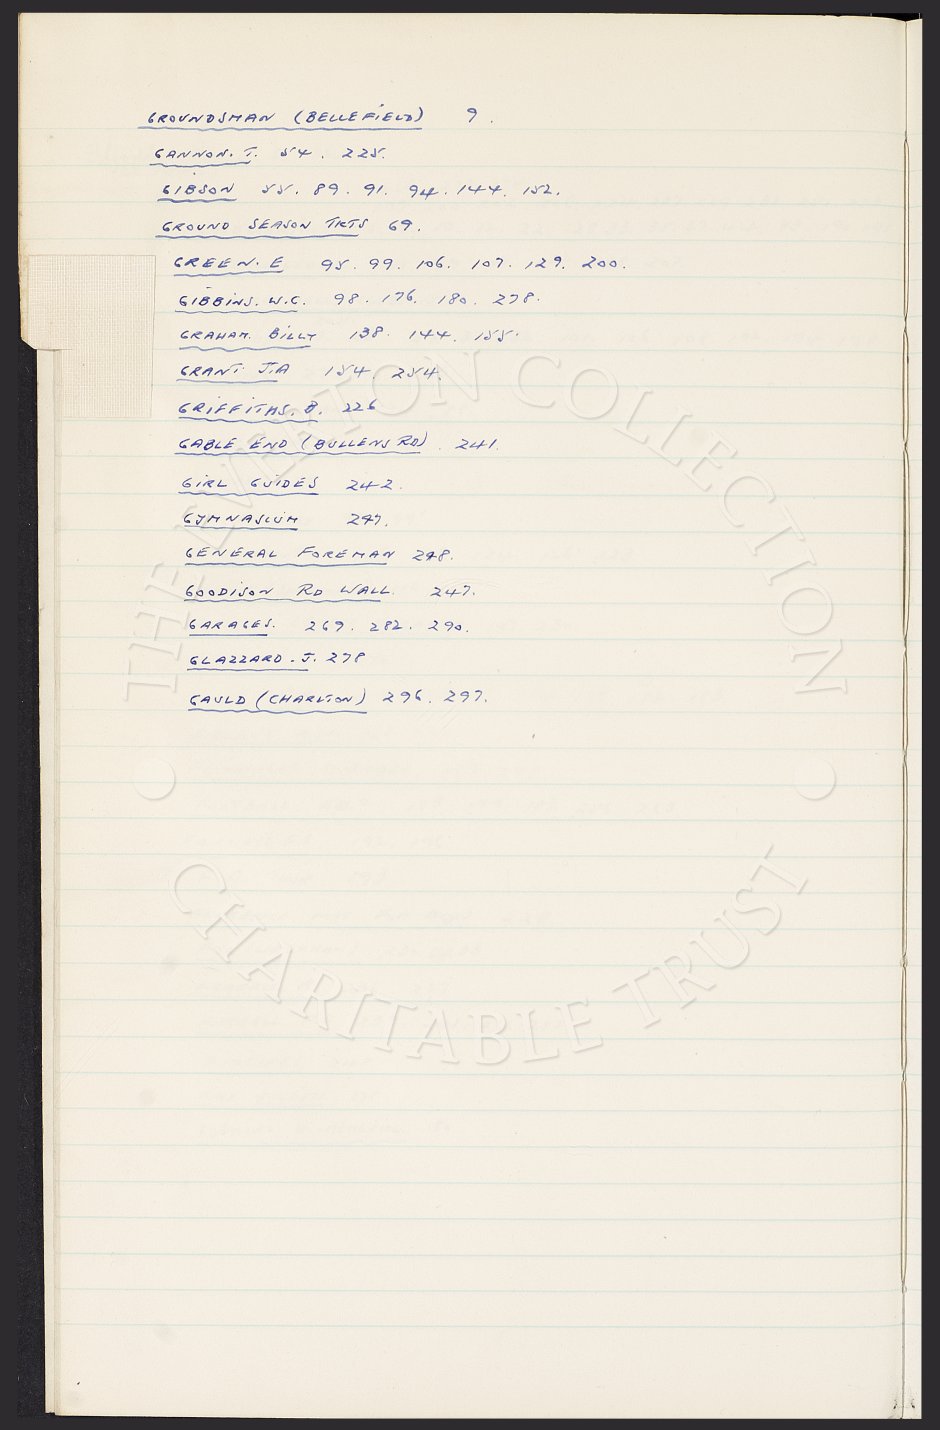 GROUNDSMAN (BELLEFIELD) 9.
GANNON. T. 54. 225.
GIBSON 55. 89. 91. 94. 144. 152.
GROUND SEASON TKTS 69.
GREEN. E 95. 99. 106. 107. 129. 200.
GIBBINS. W.C. 98. 176. 180. 278.
GRAHAM. BILLY 138. 144. 155.
GRANT J.A 154 254.
GRIFFITHS. B. 226
GABLE END (BULLENS RD). 241.
GIRL GUIDES 242.
GYMNASIUM 247.
GENERAL FOREMAN 248.
GOODISON RD WALL. 247.
GARAGES. 269. 282. 290.
GLAZZARD. J. 278
GAULD (CHARLTON) 296. 297.
THE EVERTON COLLECTION
CHARITABLE TRUST